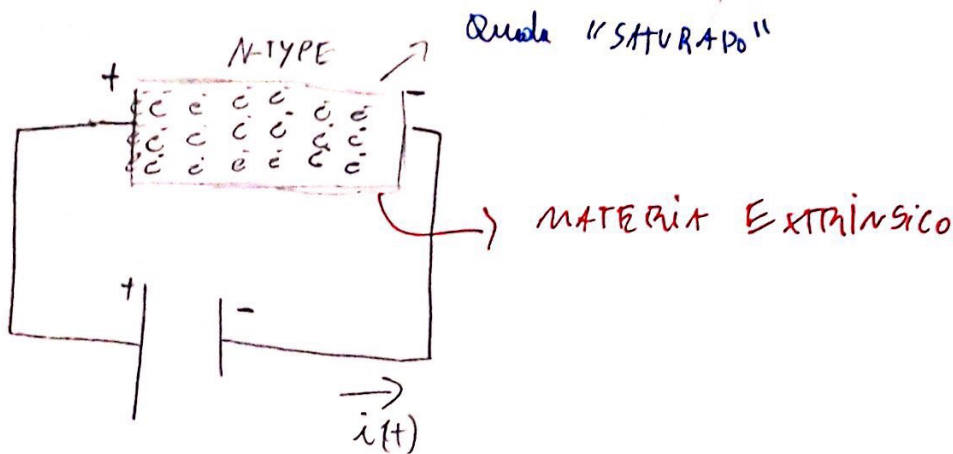 "SATURADO"
N-TYPE
+ -
e e e e e e e
e e e e e e e
e e e e e e e
MATERIA EXTRÍNSICO
+ -
i(t)